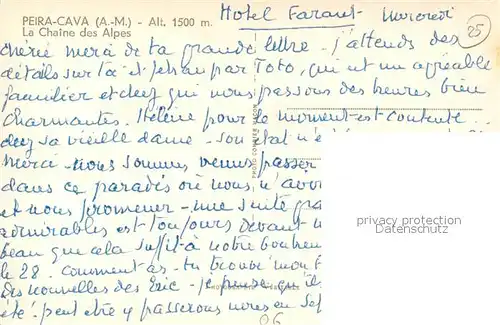 PEIRA-CAVA (A.-M.) - Alt. 1500 m.
La Chaîne des Alpes
Hotel Faraut Mercredi
25
chérie merci de ta grande lettre - j'attends des
détails sur toi et par Toto, qui est un agréable
familier et chez qui nous passons des heures bien
charmantes. Hélène pour le moment est contente
chez sa vieille dame - son
merci - nous sommes venus passer
dans ce paradis où nous n'avons
et nous promener - une suite
admirables est toujours devant
beau que cela suffit à notre bonheur
le 28. Comment as-tu trouvé mon
des nouvelles des Eric - je pense qu'il
été! peut être y passerons nous en Sep
06
privacy protection
Datenschutz